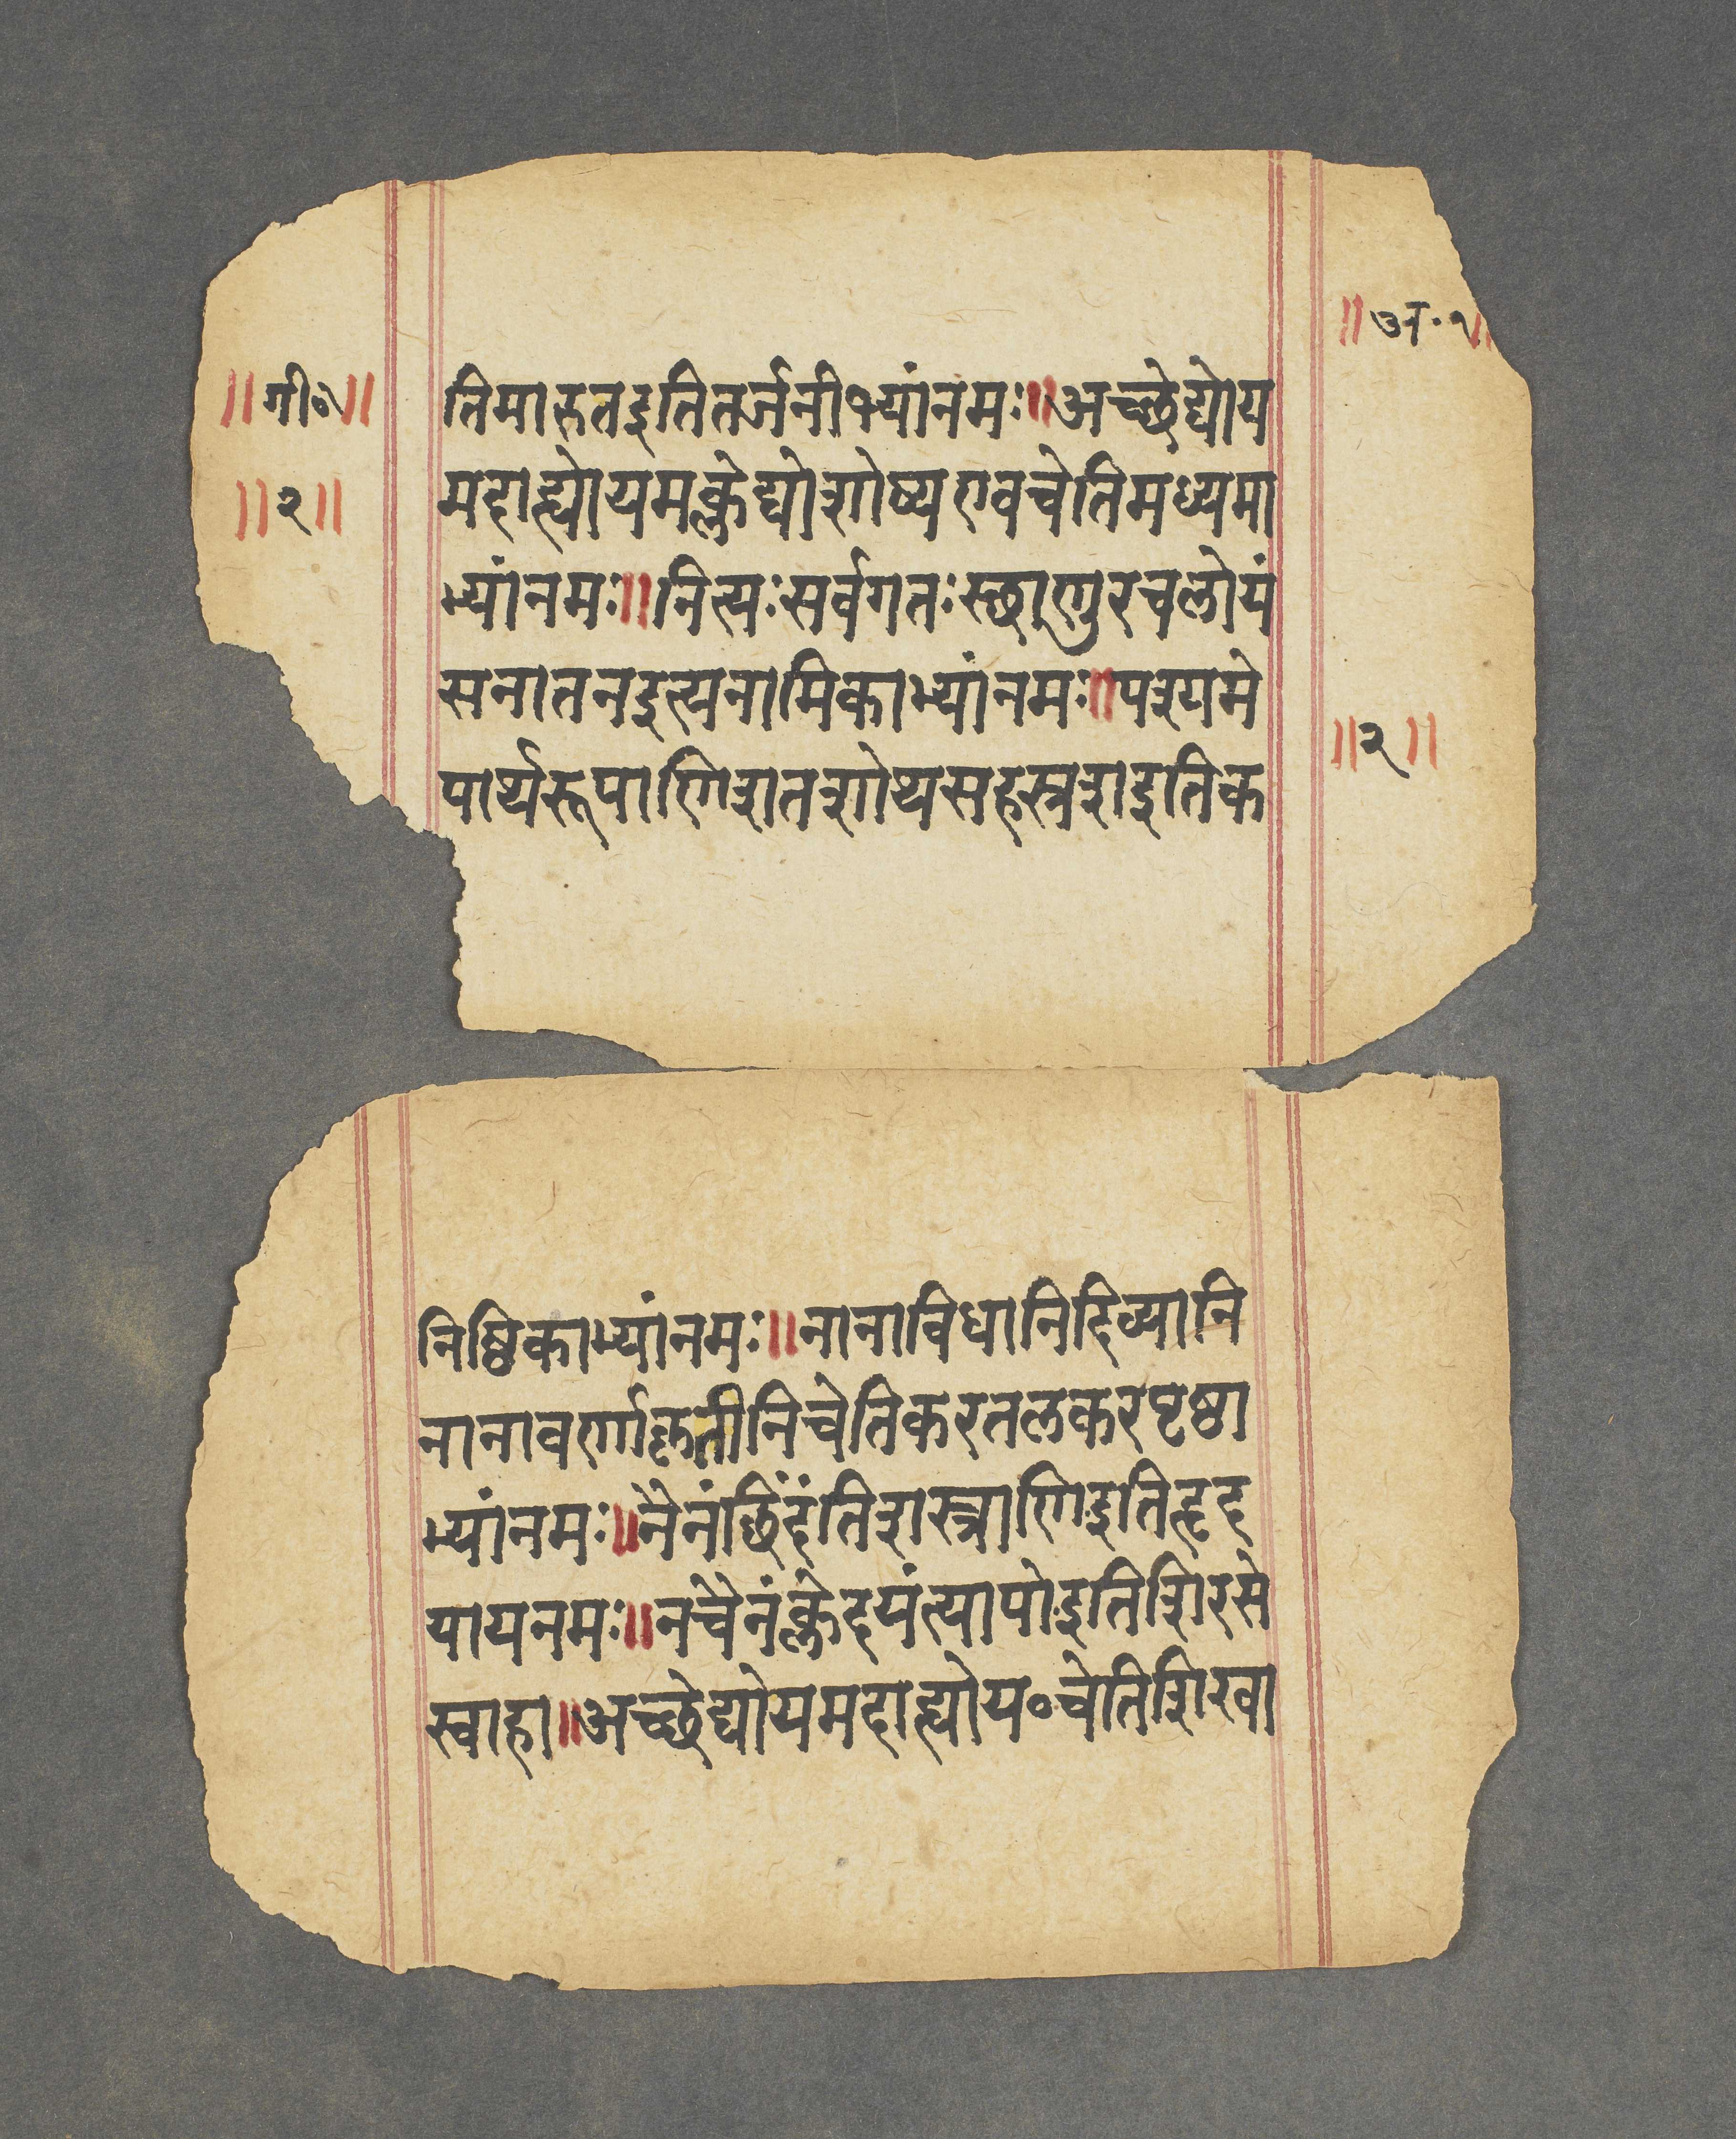 ॥ अ॰ १॥
॥गी॰॥
तिमारुतइतितर्जनीभ्यांनमः॥अच्छेद्योय
॥२॥
मदाह्योयमक्लेद्योशोष्यएवचेतिमध्यमा
भ्यांनमः॥नित्यःसर्वगतःस्थाणुरचलोयं
सनातनइत्यनामिकाभ्यांनमः॥पश्यमे
॥२॥
पार्थरूपाणिशतशोथसहस्रशइतिक
निष्ठिकाभ्यांनमः॥नानाविधानिदिव्यानि
नानावर्णाकृतीनिचेतिकरतलकरपृष्ठा
भ्यांनमः॥नैनंछिंदंतिशस्त्राणिइतिहृद
यायनमः॥नचैनंक्लेदयंत्यापोइतिशिरसे
स्वाहा॥अच्छेद्योयमदाह्योय॰चेतिशिखा